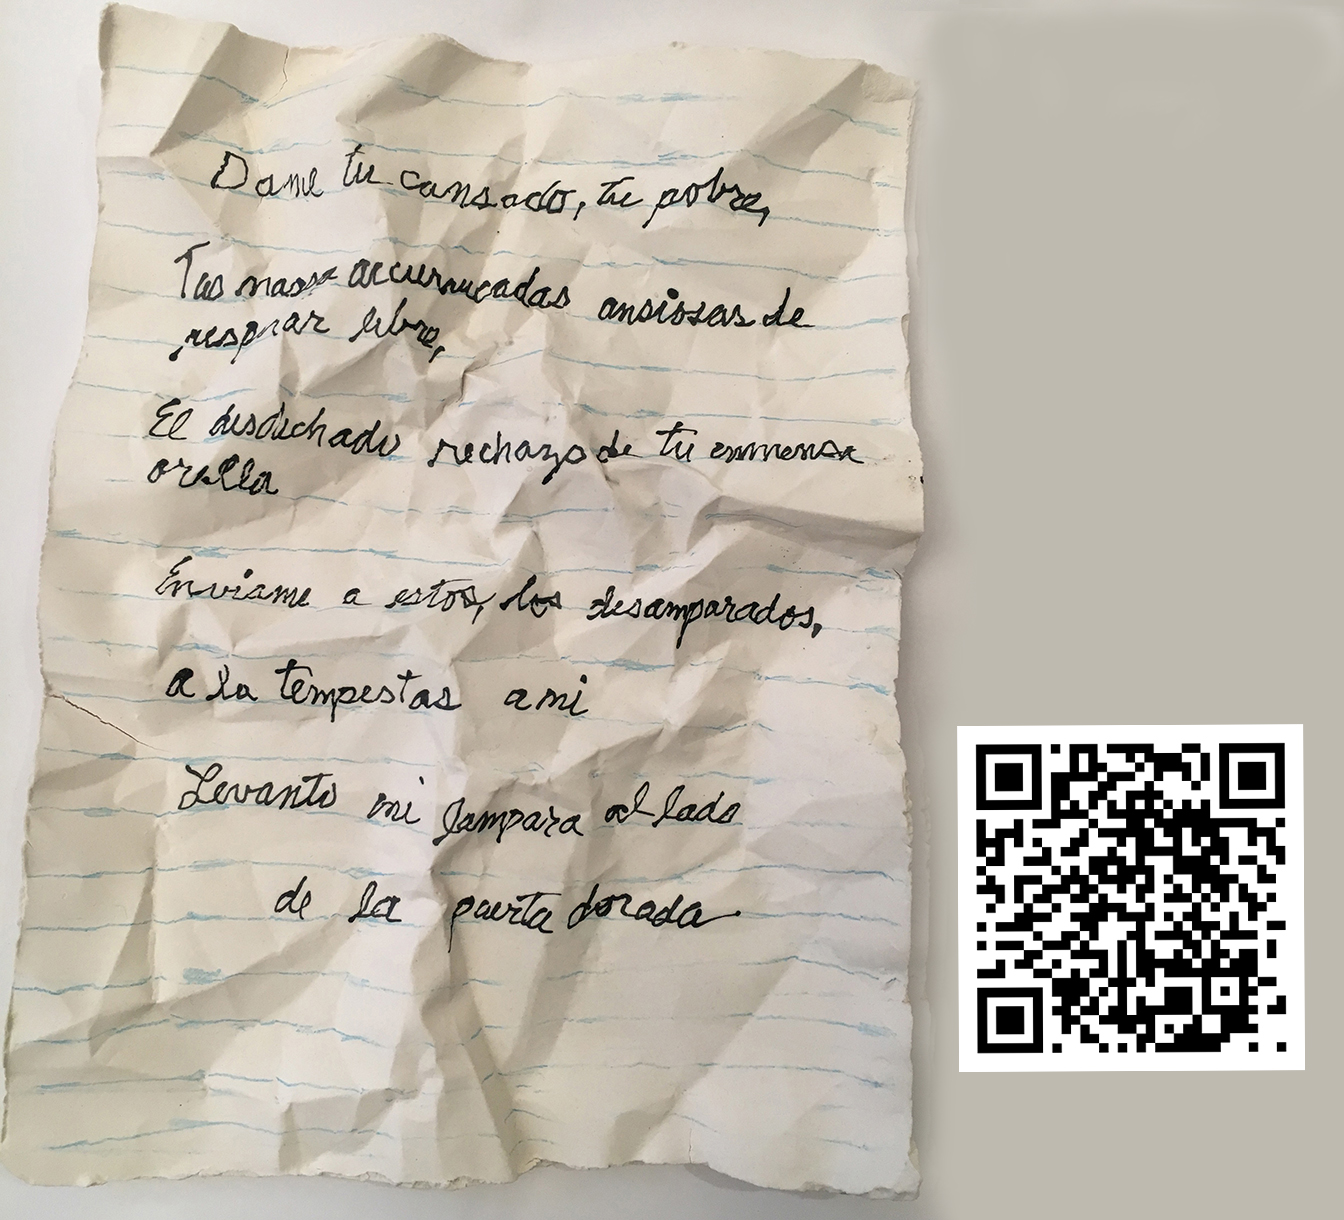 Dame tu cansado, tu pobre,
Tus masa acurrucadas ansiosas de
respirar libre,
El desdichado rechazo de tu inmensa
orilla
Enviame a estos, los desamparados,
a la tempestas a mi
Levanto mi lampara al lado
de la puerta dorada